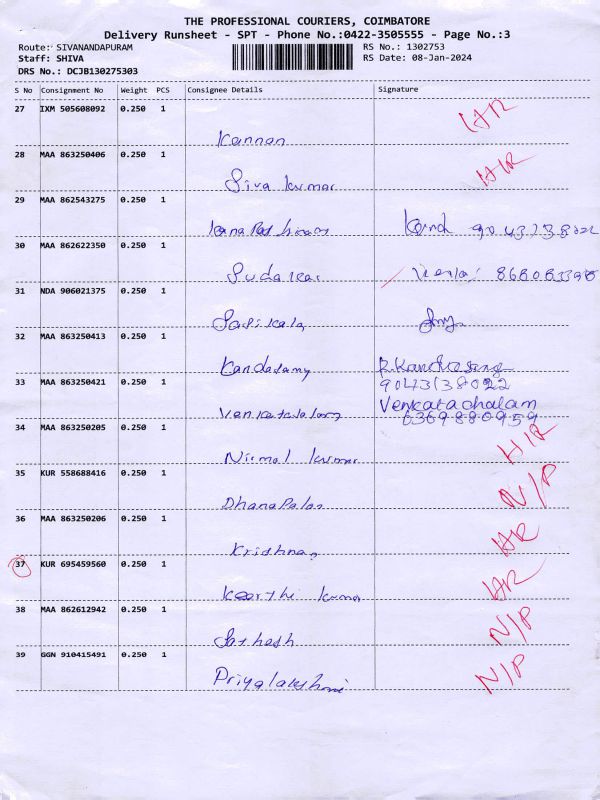 THE PROFESSIONAL COURIERS, COIMBATORE
Delivery Runsheet - SPT - Phone No.:0422-3505555 - Page No.:3
Route: SIVANANDAPURAM RS No.: 1302753
Staff: SHIVA RS Date: 08-Jan-2024
DRS No.: DCJB130275303
S No Consignment No Weight PCS Consignee Details Signature
27 IXM 505608092 0.250 1
Kannan
28 MAA 863250406 0.250 1
Siva kumar H/R
29 MAA 862543275 0.250 1
30 MAA 862622350 0.250 1
31 NDA 906021375 0.250 1
Sasikala
32 MAA 863250413 0.250 1
Kandasamy
33 MAA 863250421 0.250 1 9043138022
Venkatachalam
6369880959
34 MAA 863250205 0.250 1
Nirmal kumar H/R
35 KUR 558688416 0.250 1 N/P
Dhanapalan
36 MAA 863250206 0.250 1
Krishnan
37 KUR 695459560 0.250 1
Keerthi kumar
38 MAA 862612942 0.250 1 N/P
Sathesh
39 GGN 910415491 0.250 1 N/P
Priyalakshmi